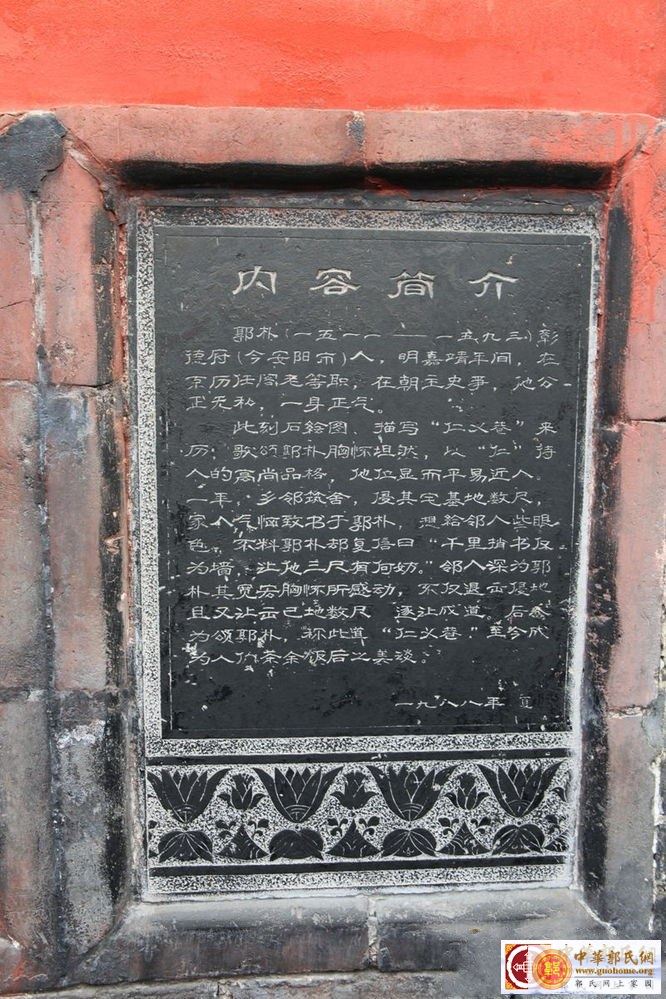 内容简介
郭朴(一五一一——一五九三)彰
德府(今安阳市)人,明嘉靖年间,在
京历任阁老等职,在朝主史事,他公
正无私,一身正气。
此刻石绘图,描写“仁义巷”来
历,歌颂郭朴胸怀坦然,以“仁”待
人的高尚品格,他位显而平易近人。
一年,乡邻筑舍,侵其宅基地数尺,
家人气恼致书于郭朴,想给邻人些眼
色。不料郭朴却复信曰“千里捎书仅
为墙,让他三尺有何妨。”邻人深为郭
朴其宽宏胸怀所感动,不仅退出侵地
且又让出己地数尺,遂让成道。后
为颂郭朴,称此道“仁义巷”至今成
为人们茶余饭后之美谈。
一九八八年 夏
中華郭氏網
www.guohome.org
郭氏网上家园